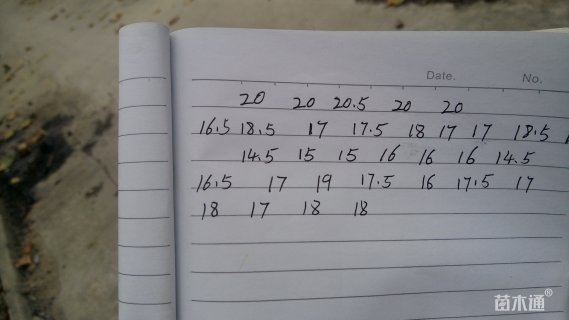 Date. No.
20 20 20.5 20 20
16.5 18.5 17 17.5 18 17 17 18.5
14.5 15 15 16 16 16 14.5
16.5 17 19 17.5 16 17.5 17
18 17 18 18
苗木通®